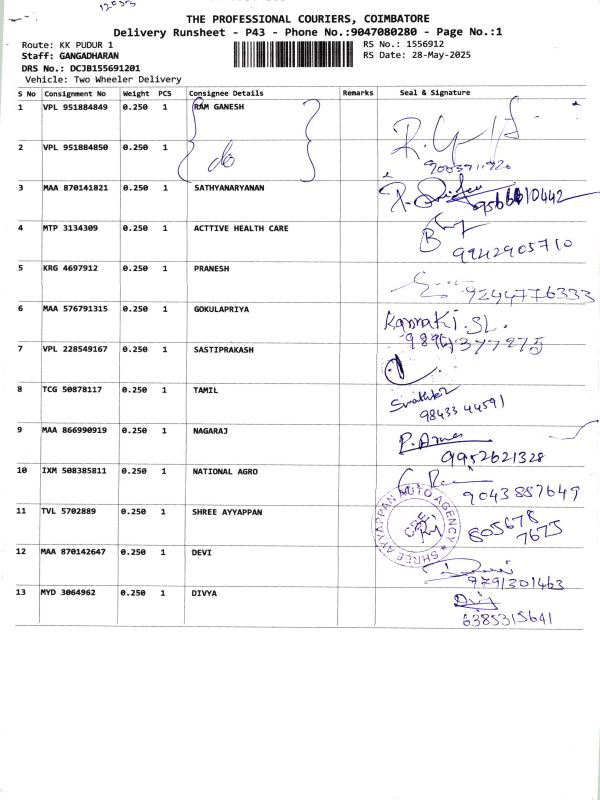 THE PROFESSIONAL COURIERS, COIMBATORE
Delivery Runsheet - P43 - Phone No.:9047080280 - Page No.:1
Route: KK PUDUR 1 RS No.: 1556912
Staff: GANGADHARAN RS Date: 28-May-2025
DRS No.: DCJB155691201
Vehicle: Two Wheeler Delivery
S No Consignment No Weight PCS Consignee Details Remarks Seal & Signature
1 VPL 951884849 0.250 1 RAM GANESH
2 VPL 951884850 0.250 1 do
3 MAA 870141821 0.250 1 SATHYANARYANAN
4 MTP 3134309 0.250 1 ACTTIVE HEALTH CARE 9942905710
5 KRG 4697912 0.250 1 PRANESH 9244776333
6 MAA 576791315 0.250 1 GOKULAPRIYA Kannaki. SL.
7 VPL 228549167 0.250 1 SASTIPRAKASH
8 TCG 50878117 0.250 1 TAMIL 98433 44591
9 MAA 866990919 0.250 1 NAGARAJ 9952621328
10 IXM 508385811 0.250 1 NATIONAL AGRO 9043857649
11 TVL 5702889 0.250 1 SHREE AYYAPPAN SHREE AYYAPPAN AUTO AGENCY CBE. 805678
7675
12 MAA 870142647 0.250 1 DEVI 9791301463
13 MYD 3064962 0.250 1 DIVYA 6385315641